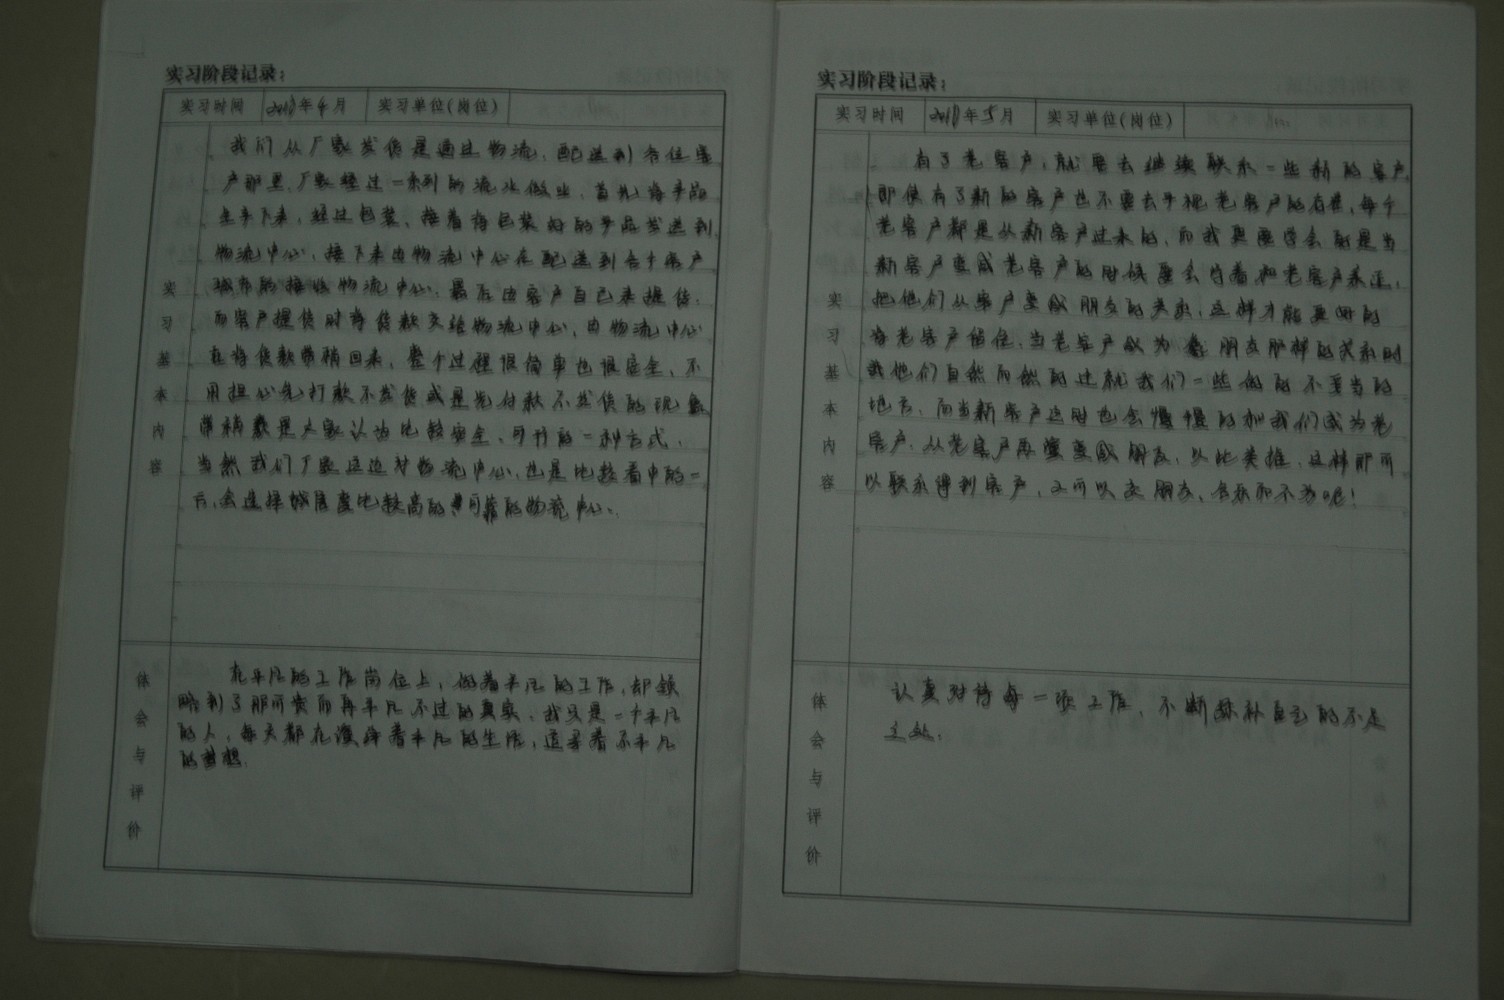 实习阶段记录：
实习时间 2011年4月 实习单位(岗位)
实习基本内容
我们从厂家发货是通过物流，配送到各位客
户那里，厂家经过一系列的流水做业，首先将产品
生产下来，经过包装，接着将包装好的产品发送到
物流中心，接下来由物流中心在配送到各个客户
城市的接收物流中心，最后由客户自己来提货，
而客户提货时将货款交给物流中心，由物流中心
在将货款带稍回来，整个过程很简单也很安全，不
用担心先打款不发货或是先付款不发货的现象
带稍款是大家认为比较安全，可行的一种方式，
当然我们厂家这边对物流中心，也是比较看中的一
点，会选择诚信度比较高的可靠的物流中心。
体会与评价
在平凡的工作岗位上，做着平凡的工作，却领
略到了那可贵而再平凡不过的真实，我只是一个平凡
的人，每天都在演绎着平凡的生活，追寻着不平凡
的梦想。
实习阶段记录：
实习时间 2011年5月 实习单位(岗位)
实习基本内容
有了老客户，就要去继续联系一些新的客户，
即使有了新的客户也不要去忽视老客户的存在，每个
老客户都是从新客户过来的，而我更要学会的是当
新客户变成老客户的时候要会守着和老客户来往，
把他们从客户变成朋友的关系，这样才能更好的
将老客户留住，当老客户成为朋友那样的关系时
我他们自然而然的迁就我们一些做的不妥当的
地方，而当新客户这时也会慢慢的和我们成为老
客户，从老客户再演变成朋友，以此类推，这样即可
以联系得到客户，又可以交朋友，何乐而不为呢！
体会与评价
认真对待每一项工作，不断弥补自己的不足
之处。